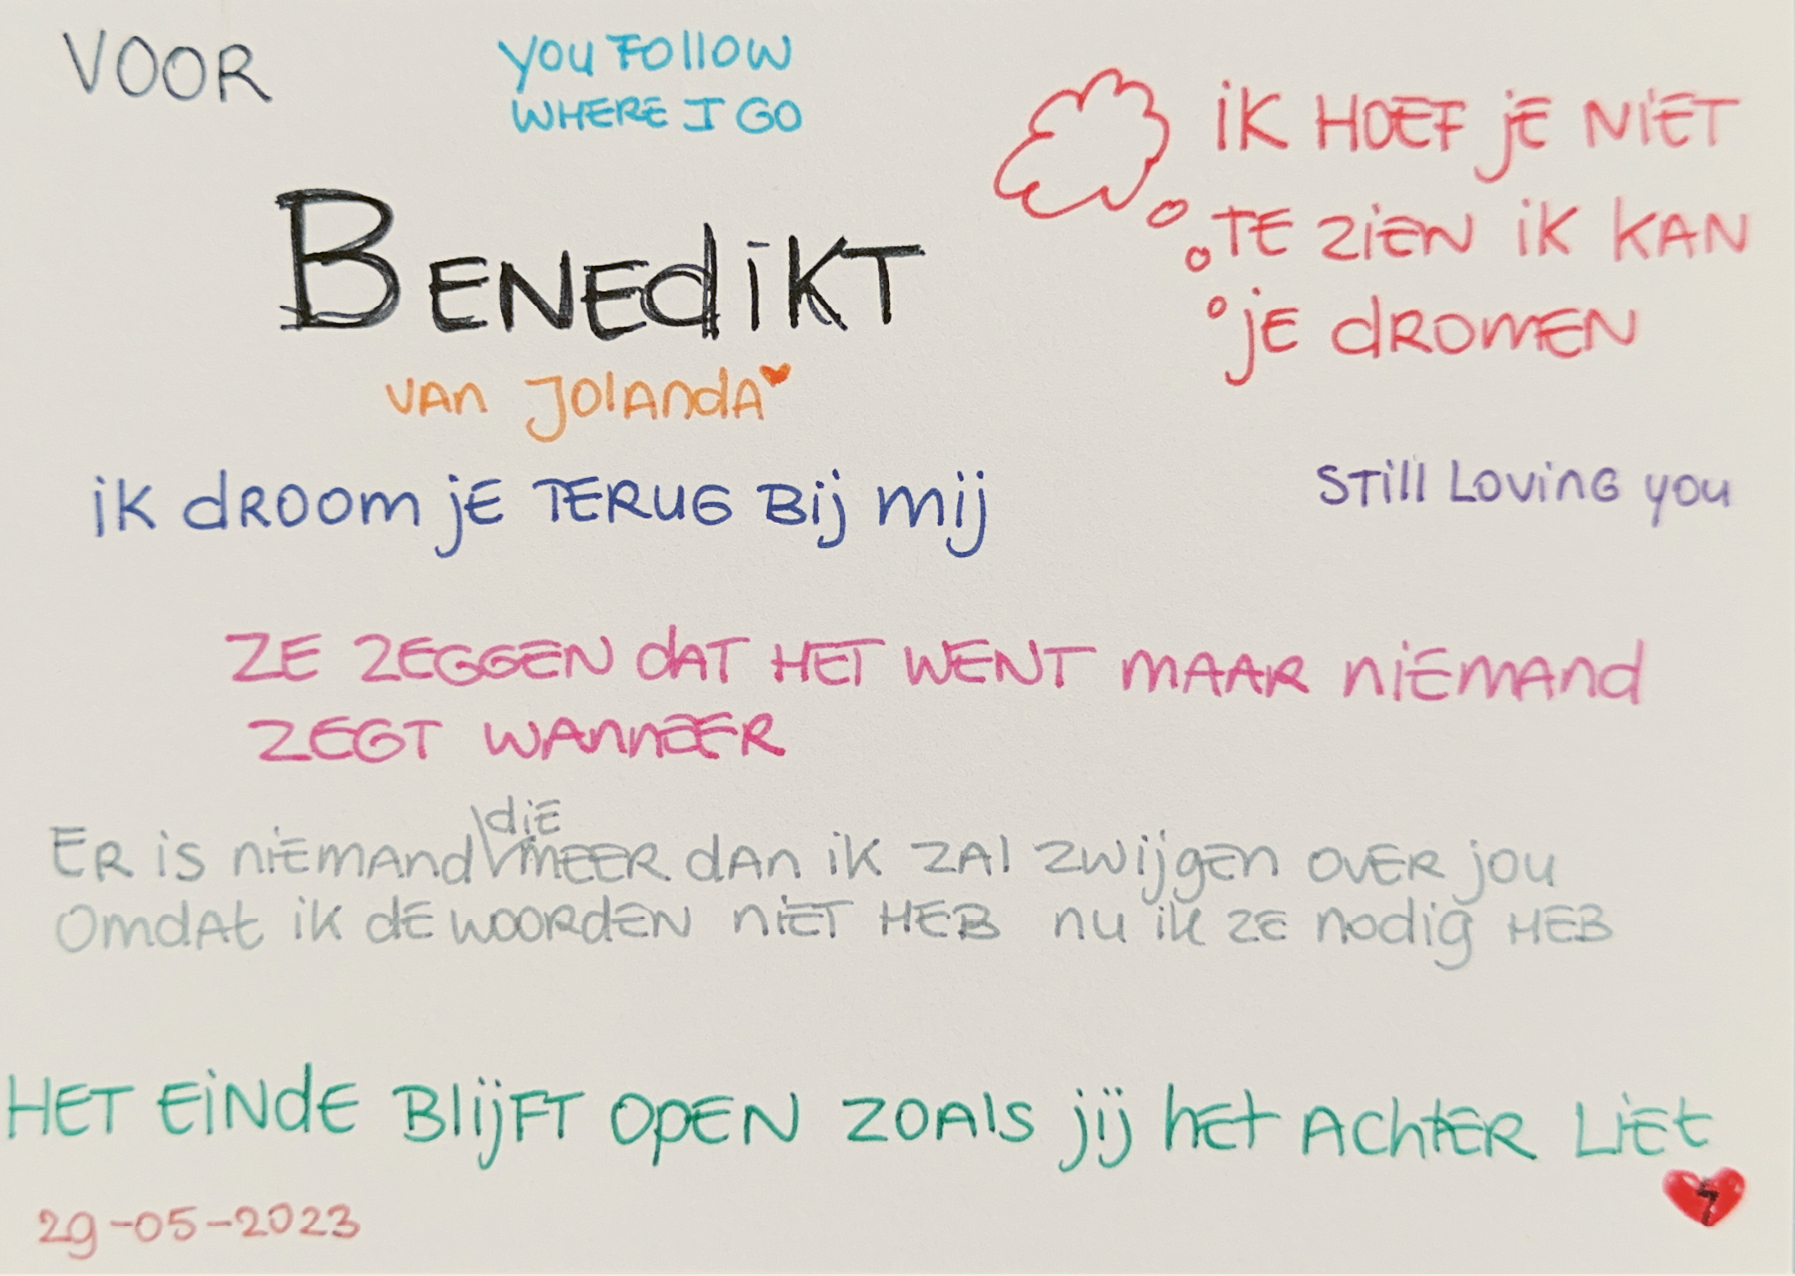 VOOR
YOU FOLLOW
WHERE I GO
BENEdiKT
VAn JOlAndA
iK HOEF jE NiET
TE ZiEN iK KAN
jE dROmEN
iK dROOm jE TERUG Bij mij
STill LOVinG you
ZE ZEGGEN dAT HET WENT mAAR niEmAnd
ZEGT WAnnEER
die
ER iS niEmAnd mEER dAn iK ZAl ZWijgEn OVER jou
OmdAt iK dE WOORdEN niET HEB nu ik ZE nodig HEB
HET EiNdE BlijFT OpEN ZOAlS jij hEt AChtER LiEt
29-05-2023